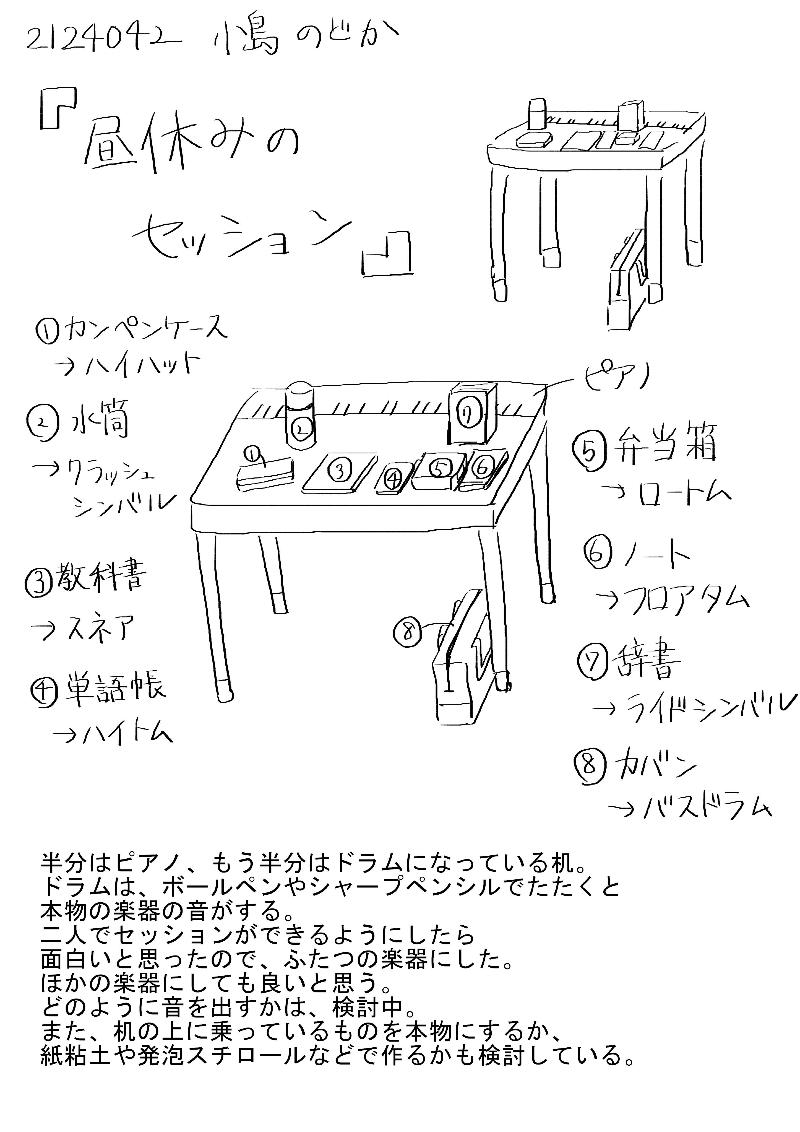 2124042 小島 のどか
『昼休みの
セッション』
①カンペンケース
→ハイハット
②水筒
→クラッシュ
シンバル
③教科書
→スネア
④単語帳
→ハイトム
ピアノ
① ② ③ ④ ⑤ ⑥ ⑦
⑧
⑤弁当箱
→ロートム
⑥ノート
→フロアタム
⑦辞書
→ライドシンバル
⑧カバン
→バスドラム
半分はピアノ、もう半分はドラムになっている机。
ドラムは、ボールペンやシャープペンシルでたたくと
本物の楽器の音がする。
二人でセッションができるようにしたら
面白いと思ったので、ふたつの楽器にした。
ほかの楽器にしても良いと思う。
どのように音を出すかは、検討中。
また、机の上に乗っているものを本物にするか、
紙粘土や発泡スチロールなどで作るかも検討している。